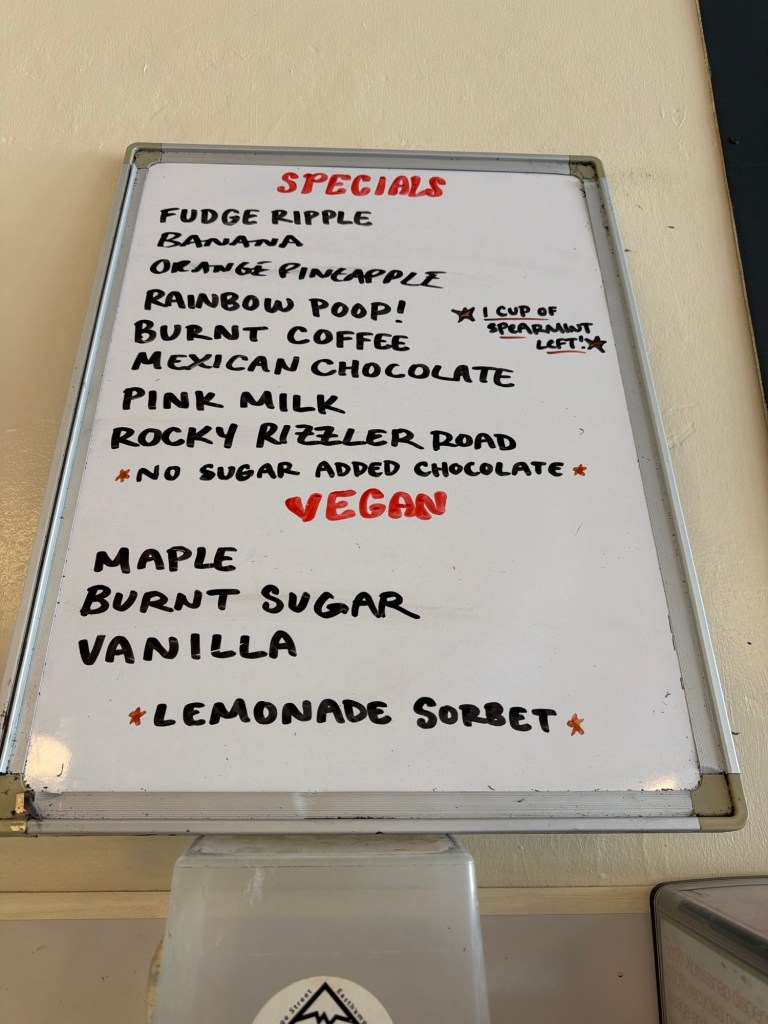 SPECIALS
FUDGE RIPPLE
BANANA
ORANGE PINEAPPLE
RAINBOW POOP!
BURNT COFFEE
MEXICAN CHOCOLATE
PINK MILK
ROCKY RIZZLER ROAD
★NO SUGAR ADDED CHOCOLATE★
★ 1 CUP OF
SPEARMINT
LEFT!★
VEGAN
MAPLE
BURNT SUGAR
VANILLA
★LEMONADE SORBET★
Street